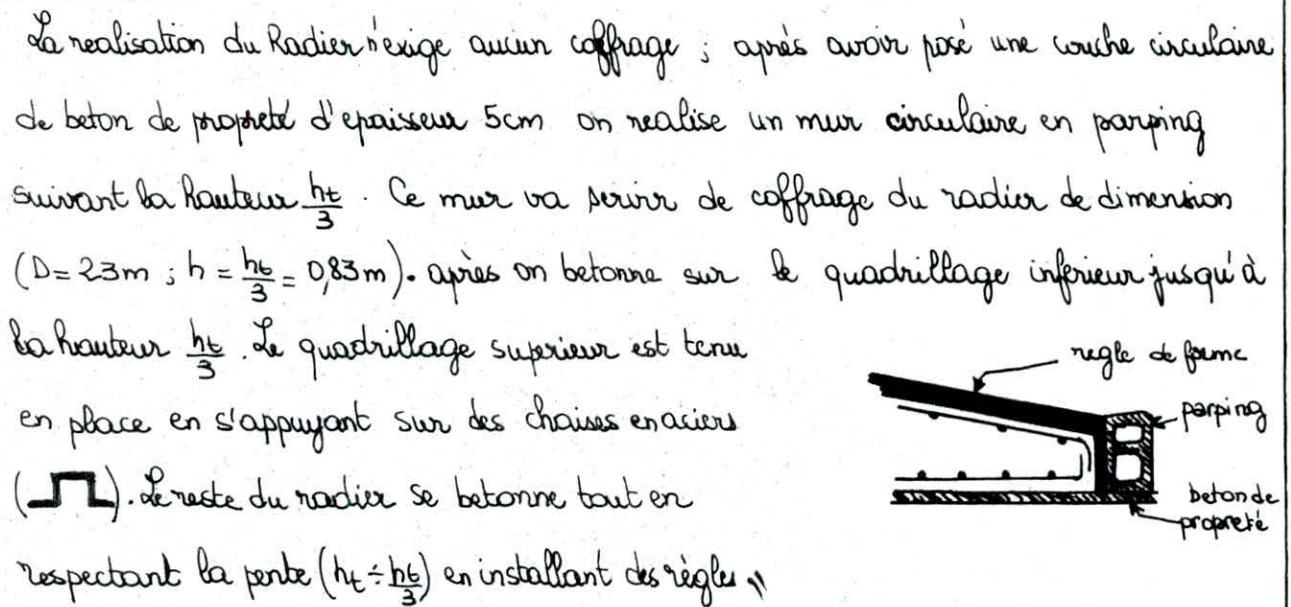 La realisation du Radier n'exige aucun coffrage ; après avoir posé une couche circulaire
de beton de propreté d'epaisseur 5cm on realise un mur circulaire en parping
suivant la hauteur ht/3 . Ce mur va servir de coffrage du radier de dimension
(D = 23m ; h = ht/3 = 0,83m). après on betonne sur le quadrillage inferieur jusqu'à
la hauteur ht/3 . Le quadrillage superieur est tenu
en place en s'appuyant sur des chaises en aciers
( ). Le reste du radier se betonne tout en
respectant la pente (ht ÷ ht/3) en installant des règles "
regle de forme
parping
beton de
propreté